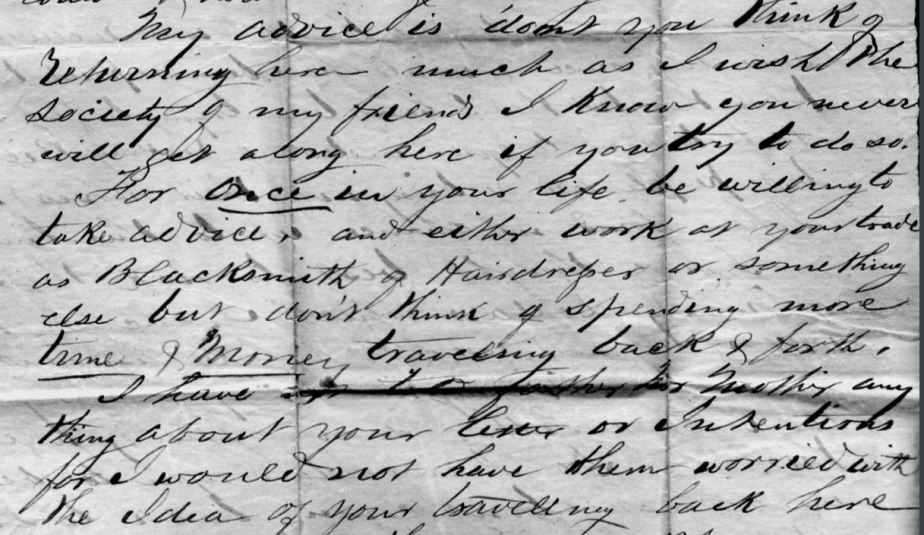 My advice is don't you think of
returning here much as I wish the
society of my friends I know you never
will get along here if you try to do so.
For once in your life be willing to
take advice, and either work at your trade
as Blacksmith & Hairdresser or something
else but don't think of spending more
time & Money traveling back & forth.
I have Mother any
thing about your letter or Intentions
for I would not have them worried with
the Idea of your travelling back here